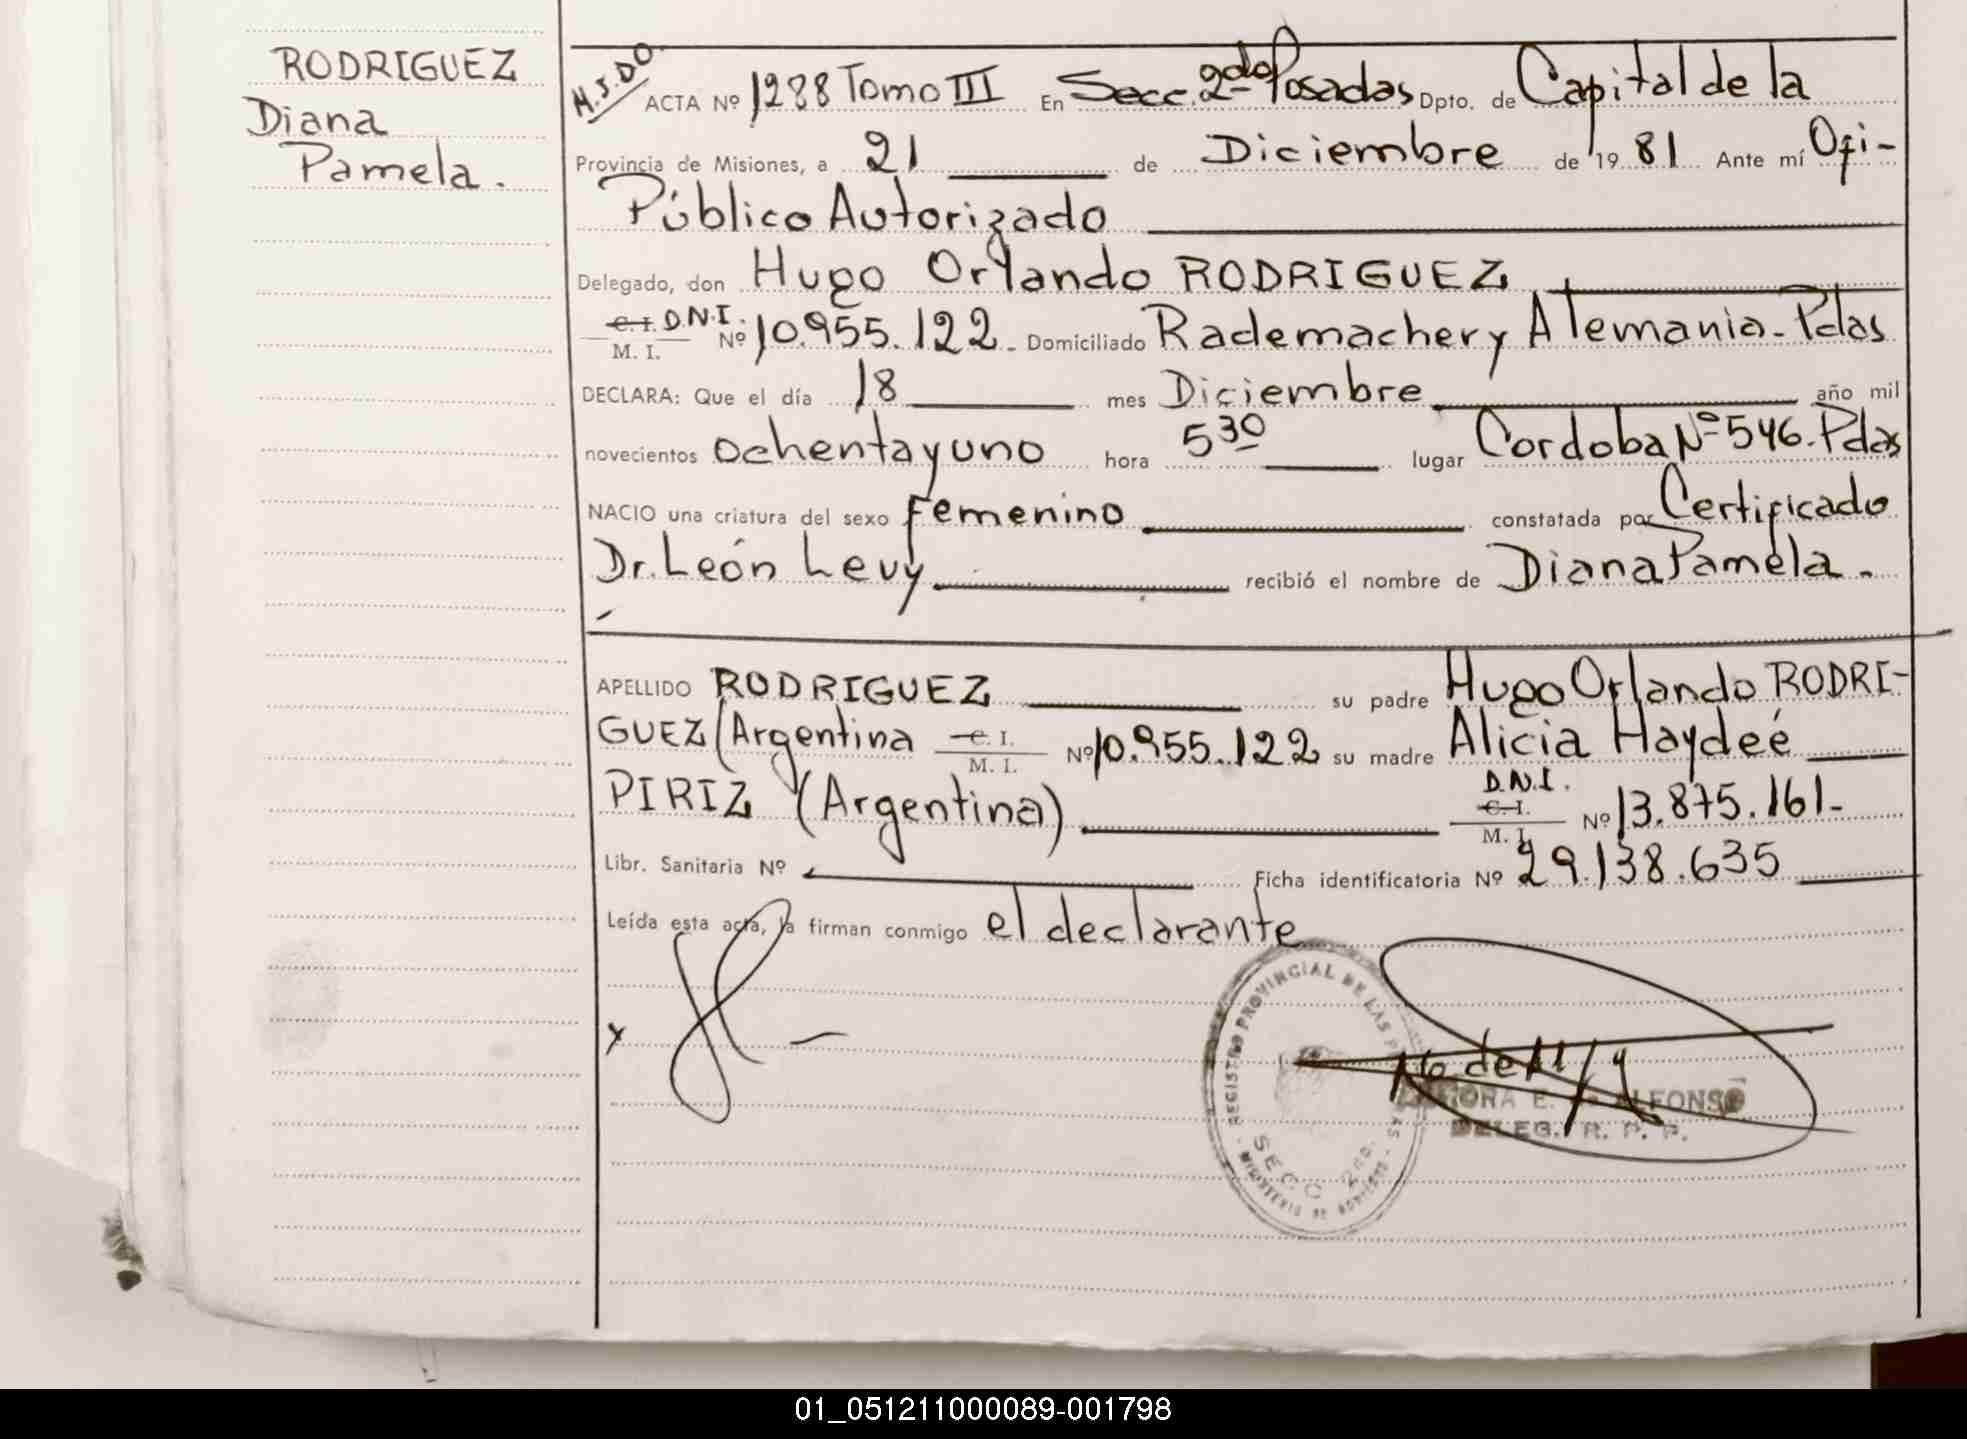 RODRIGUEZ
Diana
Pamela.
M.S.DO
ACTA Nº 1288 Tomo III En Secc. 2da Posadas Dpto. de Capital de la
Provincia de Misiones, a 21 de Diciembre de 1981 Ante mí Ofi-
Público Autorizado
Delegado, don Hugo Orlando RODRIGUEZ
C.I. D.N.I.
M. I. Nº 10.955.122.- Domiciliado Rademacher y Alemania- Pdas
DECLARA: Que el día 18 mes Diciembre año mil
novecientos ochenta y uno hora 5 30 lugar Cordoba Nº 546. Pdas
NACIO una criatura del sexo femenino constatada por Certificado
Dr. León Levy recibió el nombre de Diana Pamela.
APELLIDO RODRIGUEZ su padre Hugo Orlando RODRI-
GUEZ (Argentina C. I. M. I. Nº 10.955.122 su madre Alicia Haydeé
PIRIZ (Argentina) D.N.I. C. I. M. I. Nº 13.875.161-
Libr. Sanitaria Nº Ficha identificatoria Nº 29.138.635
Leída esta acta, la firman conmigo el declarante
x
REGISTRO PROVINCIAL DE LAS PERSONAS
SECC. 2da.
MINISTERIO DE GOBIERNO
E. ALFONSO
DELEG. R. P. P.
01_051211000089-001798